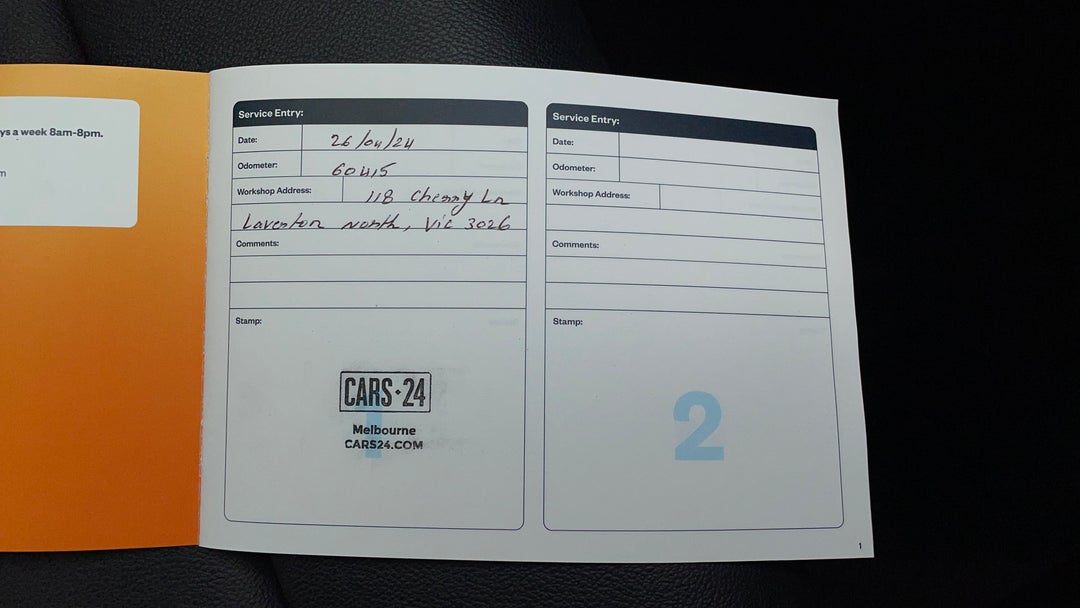 ys a week 8am-8pm.
m
Service Entry:
Date: 26/04/24
Odometer: 60415
Workshop Address: 118 Cherry Ln
Laverton North, Vic 3026
Comments:
Stamp:
CARS·24
1
Melbourne
CARS24.COM
Service Entry:
Date:
Odometer:
Workshop Address:
Comments:
Stamp:
2
1